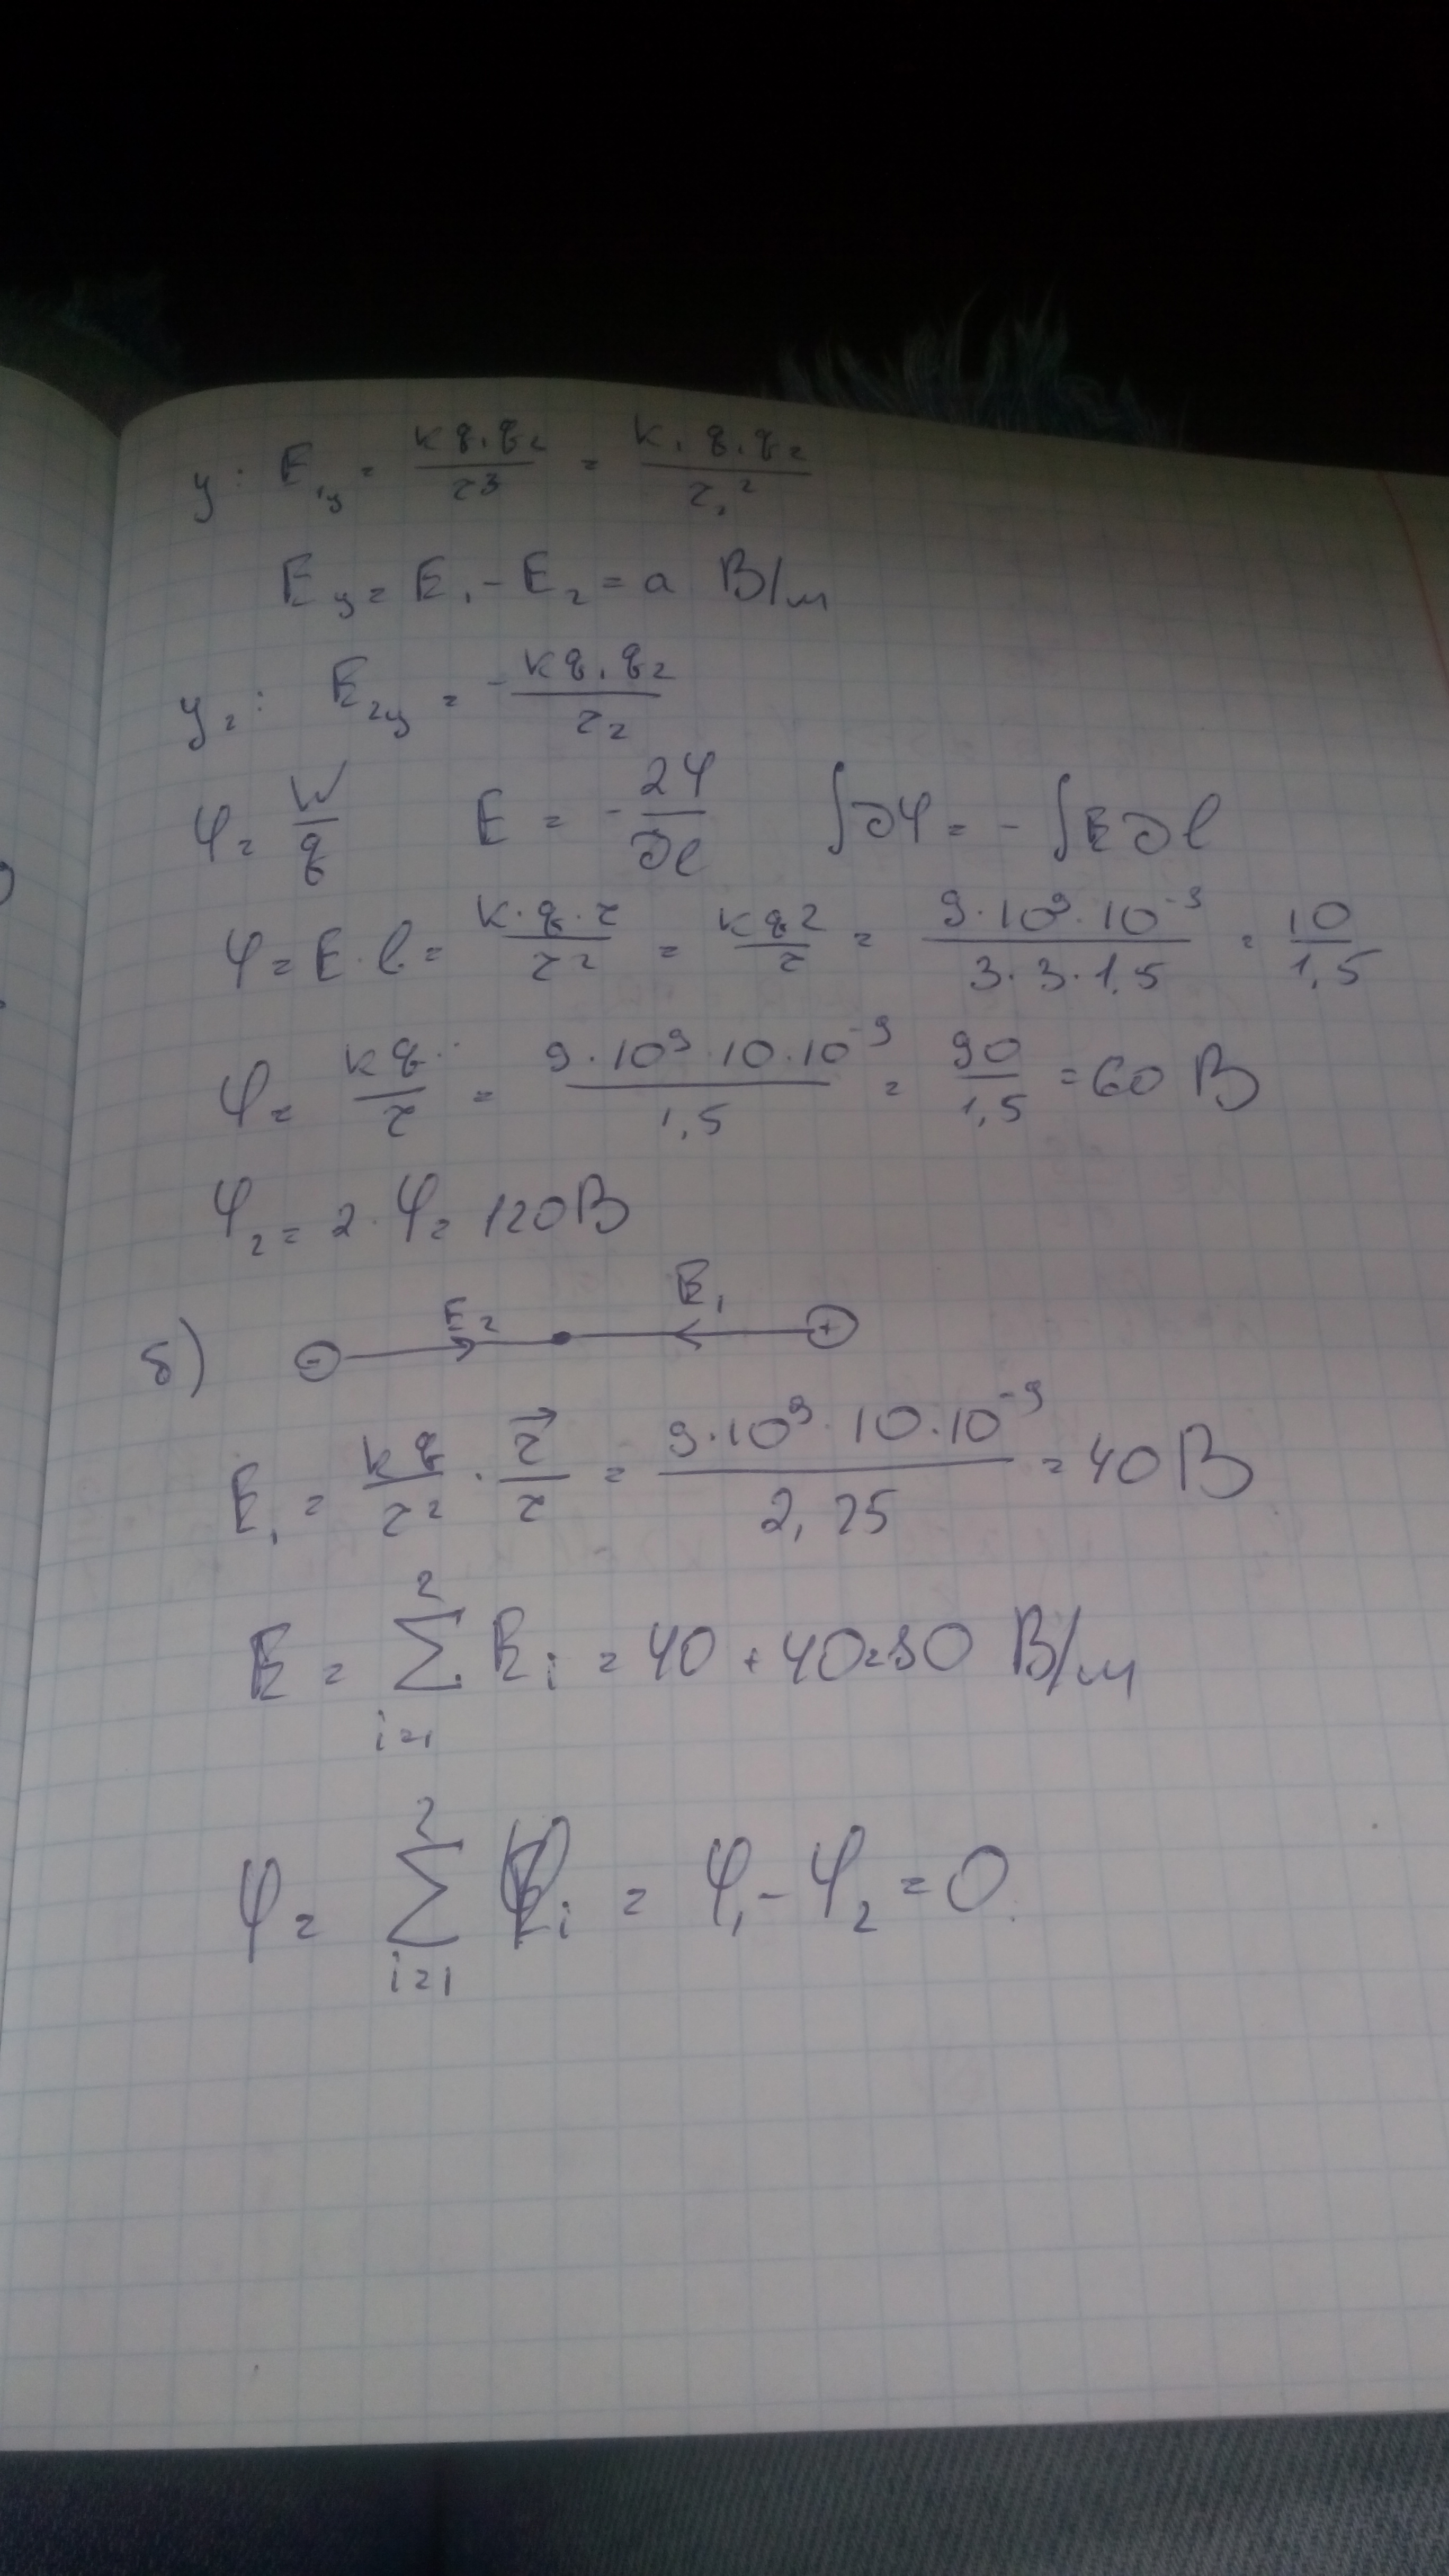 y: E₁y = kq₁q₂/r³ = k₁q₁q₂/r₁²
Ey = E₁ - E₂ = a В/м
y₂: E₂y = -kq₁q₂/r₂
φ = W/q E = -2φ/∂l ∫∂φ = -∫E∂l
φ = E·l = k·q·r/r² = kq2/r = 9·10⁹·10⁻⁹/3·3·1,5 = 10/1,5
φ = kq/r = 9·10⁹·10·10⁻⁹/1,5 = 90/1,5 = 60 В
φ₂ = 2·φ = 120В
E₂ E₁
б) - +
E₁ = kq/r² · r⃗/r = 9·10⁹·10·10⁻⁹/2,25 = 40 В
E = ∑ᵢ₌₁² Eᵢ = 40 + 40 = 80 В/м
φ = ∑ᵢ₌₁² φᵢ = φ₁ - φ₂ = 0